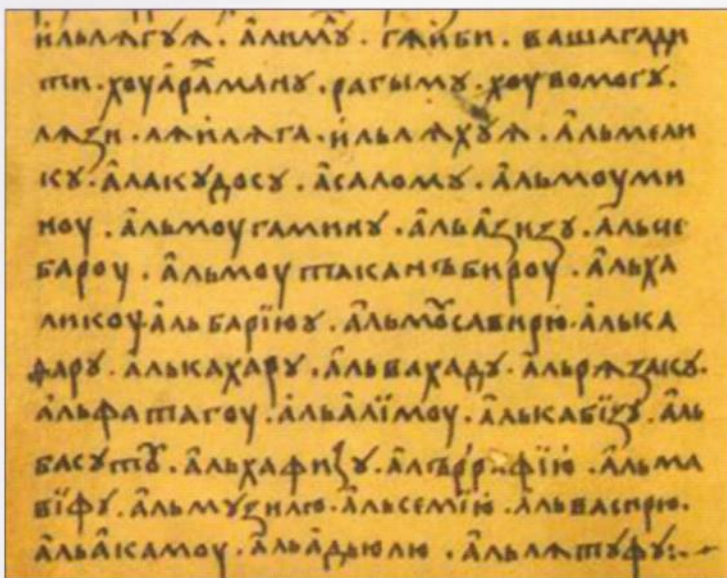 ильлѧгуѧ · а҆лимꙋ · гѧиби · вашагади
ти · хоуа҆рама́нꙋ · рагымꙋ · хоувомогꙋ ·
лѧзи · лѧи҆лѧга · и҆льлѧхꙋѧ · а҆льмели
кꙋ · а҆лакꙋдосꙋ · а҆саломꙋ · а҆льмоуми
ноу · а҆льмоугаминꙋ · а҆льа҆зизꙋ · а҆льче
бароу · а҆льмоутаканъбироу · а҆льха
ликоу · а҆льбарїюꙋ · а҆льмꙋ̑савирю · а҆лька
фарꙋ · а҆лькахарꙋ · а҆львахадꙋ · а҆льрѧзакꙋ ·
а҆льфатагоу · а҆льа҆лїмоу · а҆лькабїзꙋ · а҆ль
басꙋтꙋ̑ · а҆льхафизꙋ · а҆лъррафїю · а҆льма
вїфꙋ · а҆льмꙋзилю · а҆льсемїю · а҆львасирю ·
а҆льа҆камоу · а҆льа҆дьюлю · а҆льлѧтꙋфꙋ:~